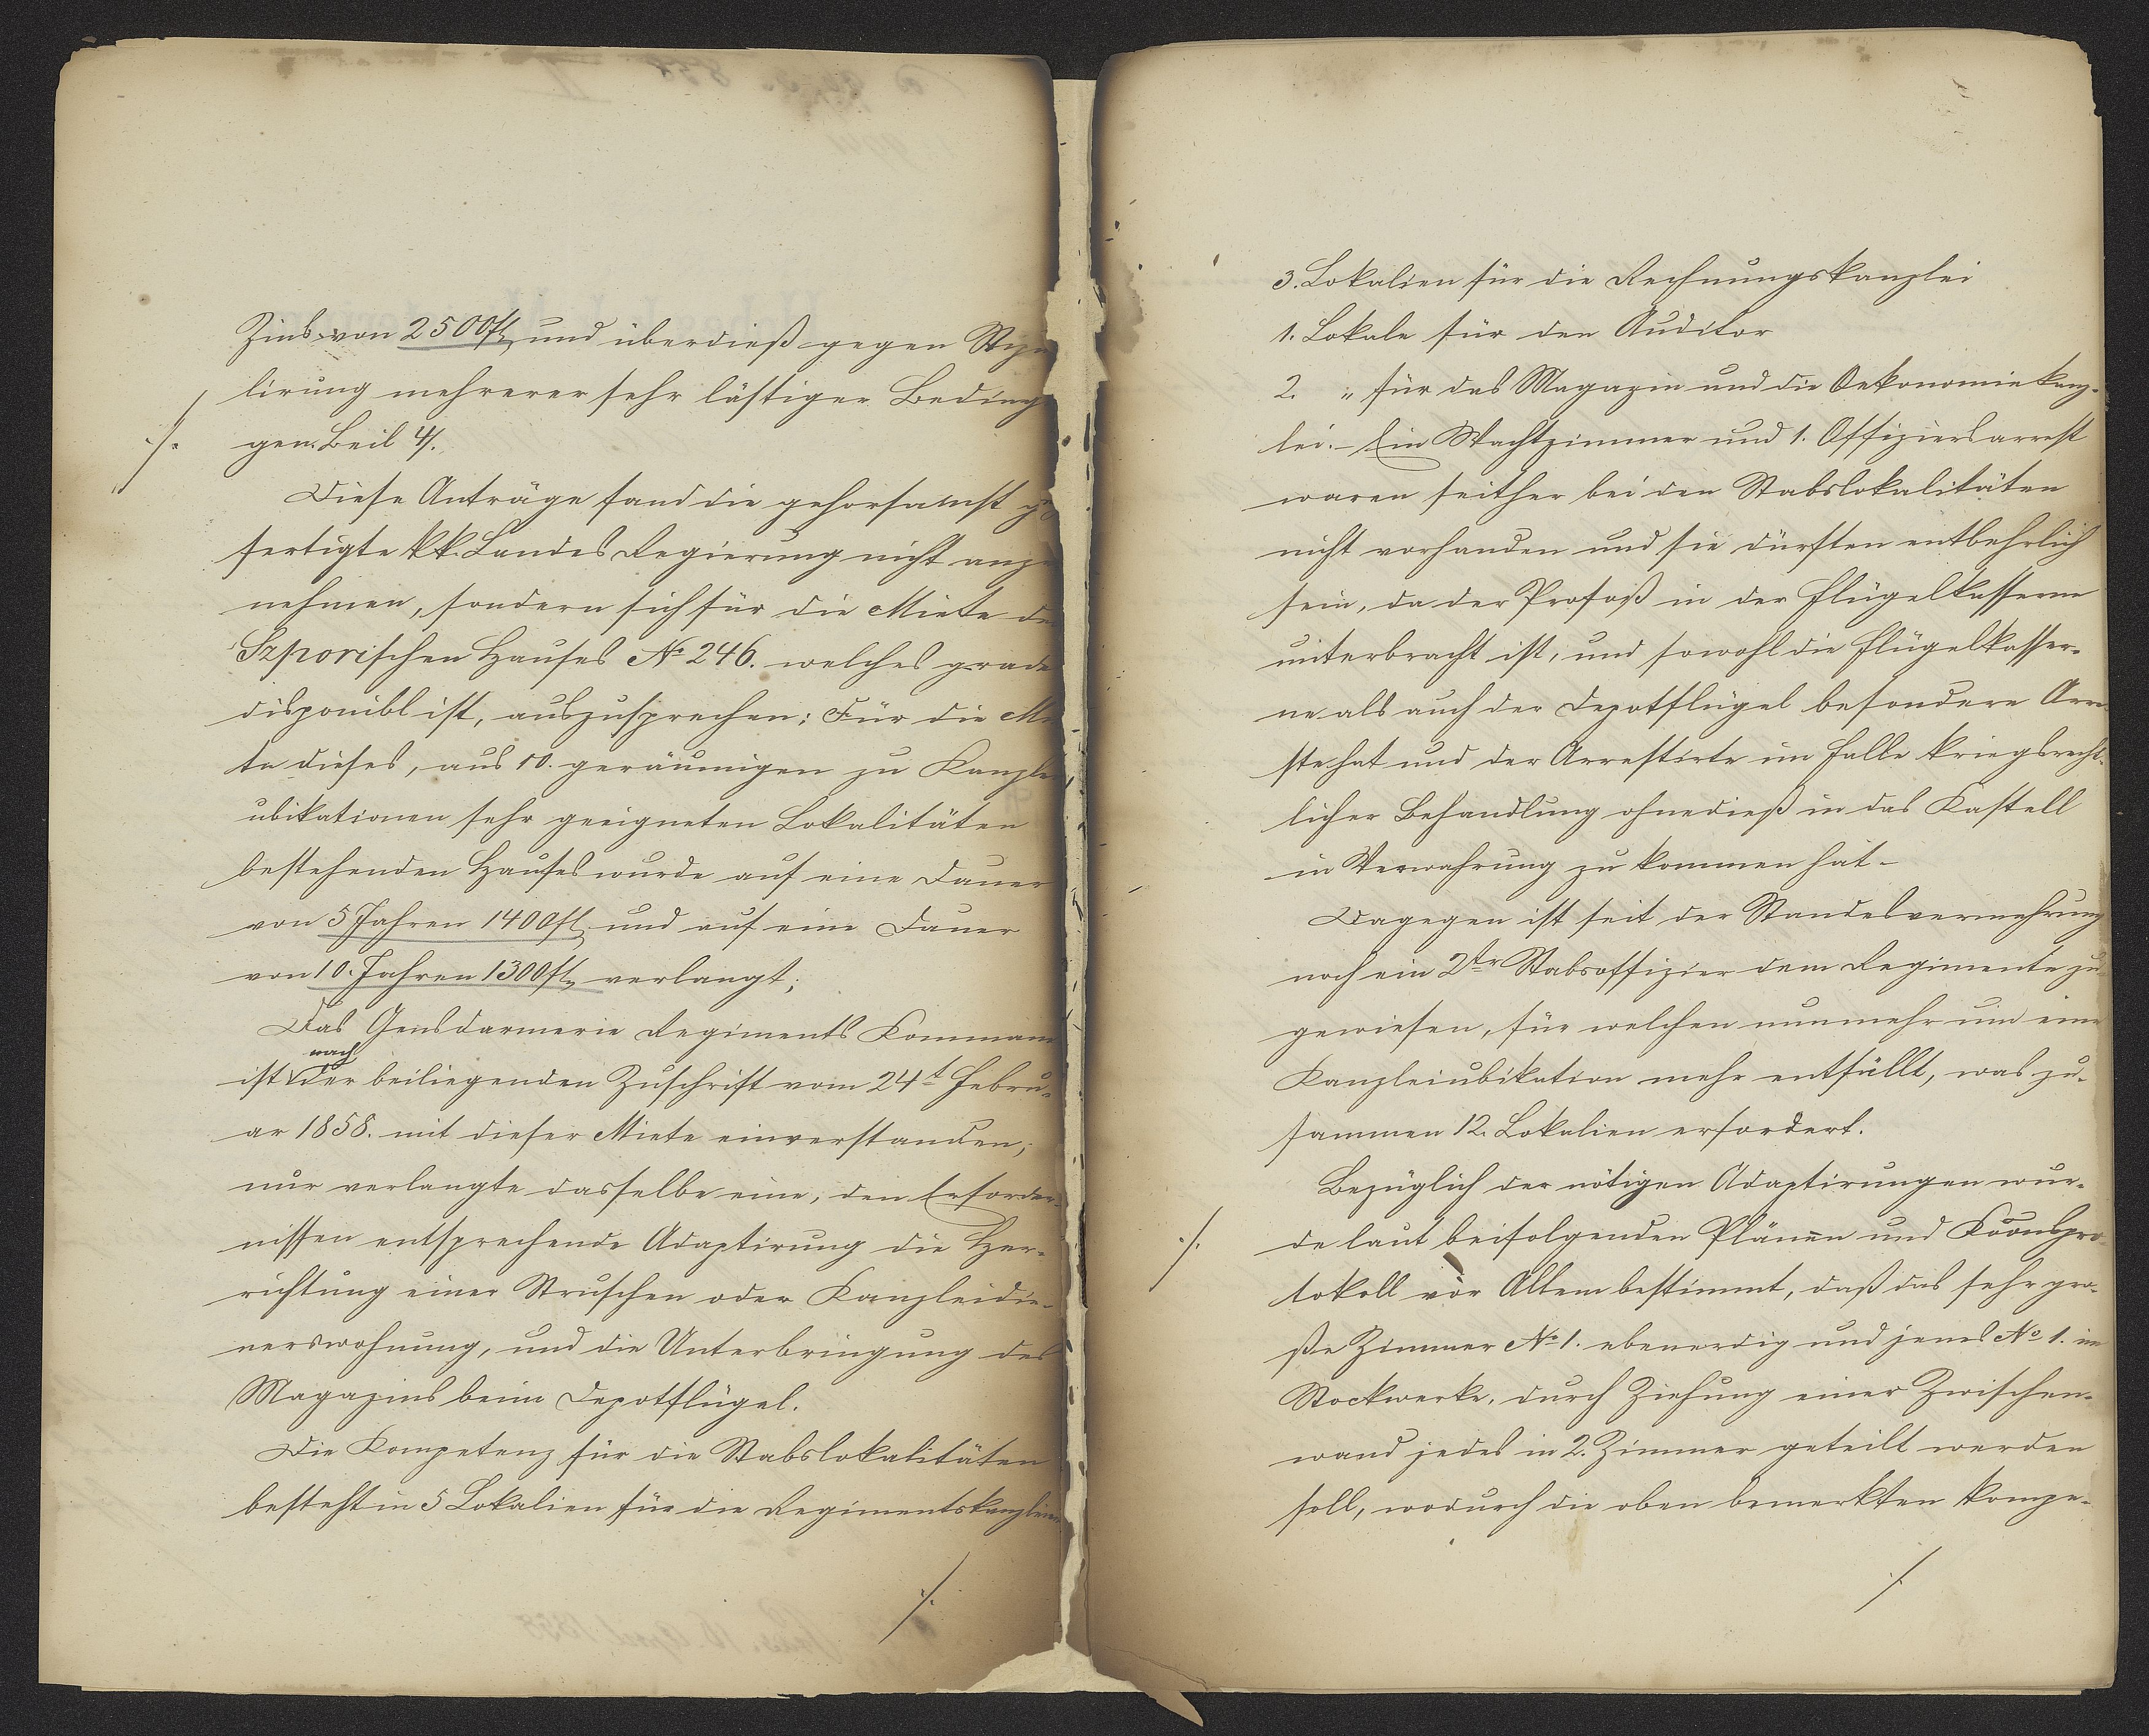 Zins von 2500 fl und überdieß gegen Stipu
lirung mehrerer sehr lästiger Beding
./. gen. Beil 4/.
Diese Anträge fand die gehorsamst ge
fertigte kk. Landes Regierung nicht anzu
nehmen, sondern sich für die Miete de
Szporischen Hauses No 246. welches grade
disponibl ist, auszusprechen; Für die Mi
te dieses, aus 10. geräumigen zu Kanzlei
ubikationen sehr geeigneten Lokalitäten
bestehenden Hauses wurde auf eine Dauer
von 5 Jahren 1400 fl und auf eine Dauer
von 10. Jahren 1300 fl verlangt;
Das Gensdarmerie Regiments Komman
nach
ist der beiliegenden Zuschrift vom 24t Febru-
ar 1858. mit dieser Miete einverstanden;
nur verlangte dasselbe eine, den Erforder-
nissen entsprechende Adaptirung die Her-
richtung einer Struschen oder Kanzleidie-
nerswohnung, und die Unterbringung des
Magazins beim Depotflügel.
Die Kompetenz für die Stabslokalitäten
besteht in 5 Lokalien für die Regimentskanzleien
./.
3. Lokalien für die Rechnungskanzlei
1. Lokale für den Auditor
2. " für das Magazin und die Oekonomiekanz-
lei. – Ein Wachtzimmer und 1. Offiziersarrest
waren seither bei den Stabslokalitäten
nicht vorhanden und sie dürften entbehrlich
sein, da der Profoß in der Flügelkasserne
unterbracht ist, und sowohl die Flügelkasser-
ne als auch der Depotflügel besondere Arre-
ste hat und der Arrestirte im Falle kriegsrecht-
licher Behandlung ohnedieß in das Kastell
in Verwahrung zu kommen hat –
Dagegen ist seit der Standesvermehrung
noch ein 2ter Stabsoffizier dem Regimente zu
gewiesen, für welchen nunmehr um eine
Kanzleiubikation mehr entfällt, was zu-
sammen 12. Lokalien erfordert.
Bezüglich der nötigen Adaptirungen wur-
./. de laut beifolgenden Plänen und Koonspro-
tokoll vor Allem bestimmt, daß das sehr gro-
ße Zimmer No 1. ebenerdig und jenes No 1. im
Stockwerke, durch Ziehung einer Zwischen-
wand jedes in 2. Zimmer geteilt werden
soll, wodurch die oben bemerkten kompe-
./.